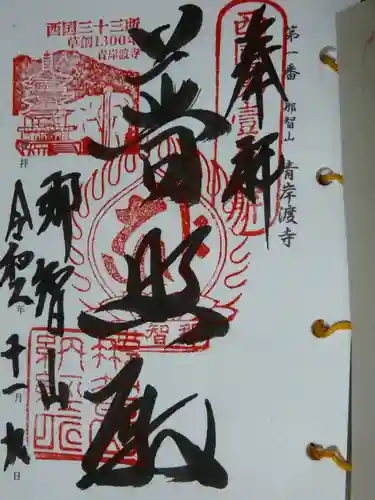 第一番 那智山 青岸渡寺
奉拝
普照殿
西国三十三所
草創1300年
青岸渡寺
拝
那智山
令和 年十一月九日
那智